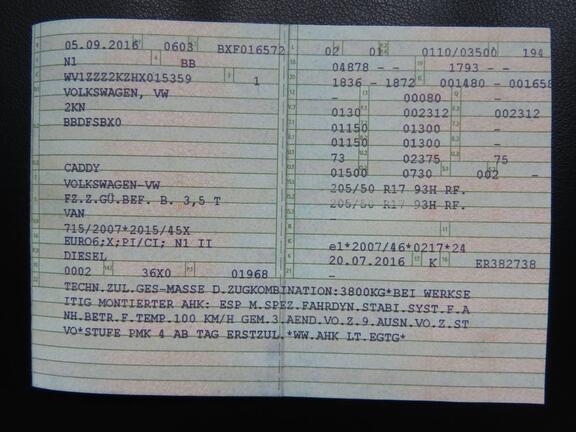 05.09.2016 0603 BXF016572
N1 BB
WV1ZZZ2KZHX015359 1
VOLKSWAGEN, VW
2KN
BBDFSBX0
CADDY
VOLKSWAGEN-VW
FZ.Z.GÜ.BEF. B. 3,5 T
VAN
715/2007*2015/45X
EURO6;X;PI/CI; N1 II
DIESEL
0002 36X0 01968
02 01 0110/03500 194
04878 - - 1793 - -
1836 - 1872 001480 -001658
- 00080 -
0130 002312 002312
01150 01300 -
01150 01300 -
73 02375 75
01500 0730 002 -
205/50 R17 93H RF.
205/50 R17 93H RF.
-
e1*2007/46*0217*24
20.07.2016 K ER382738
-
TECHN.ZUL.GES-MASSE D.ZUGKOMBINATION:3800KG*BEI WERKSE
ITIG MONTIERTER AHK: ESP M.SPEZ.FAHRDYN.STABI.SYST.F.A
NH.BETR.F.TEMP.100 KM/H GEM.3.AEND.VO.Z.9.AUSN.VO.Z.ST
VO*STUFE PMK 4 AB TAG ERSTZUL.*WW.AHK LT.EGTG*